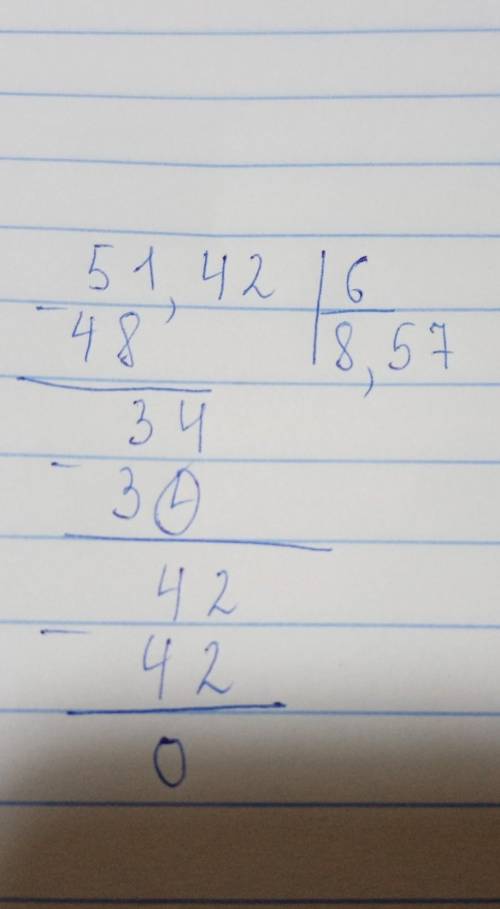 51,42 6
- 48 8,57
34
- 30
42
- 42
0